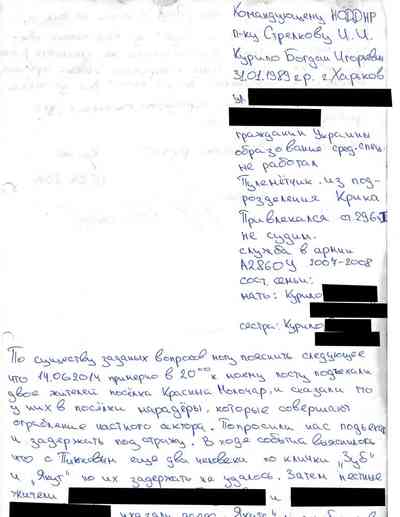 Командующему НОДДНР
п-ку Стрелкову И. И.
Курило Богдан Игоревич
31.01.1989 г.р. г. Харьков
ул.
гражданин Украины
образование сред-спец
не работал
Пулемётчик из под-
розделения Крика
Привлекался ст. 296
не судим.
служба в армии
А2860У 2007-2008
сост. семьи:
мать: Курило
сестра: Курило
По существу заданых вопросов могу пояснить следующее
что 14.06.2014 примерно в 20 00 к моему посту подъехали
двое жителей посёлка Красный Молочар, и сказали что
у них в посёлки марадёры, которые совершают
ограбление частного сектора. Попросили нас подъехать
и задержать под стражу. В ходе события выяснилось
что с Пичковым еще два человека по клички "Зуб"
и "Якут" но их задержать не удалось. Затем местные
жители и